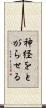 神経をと
がらせる